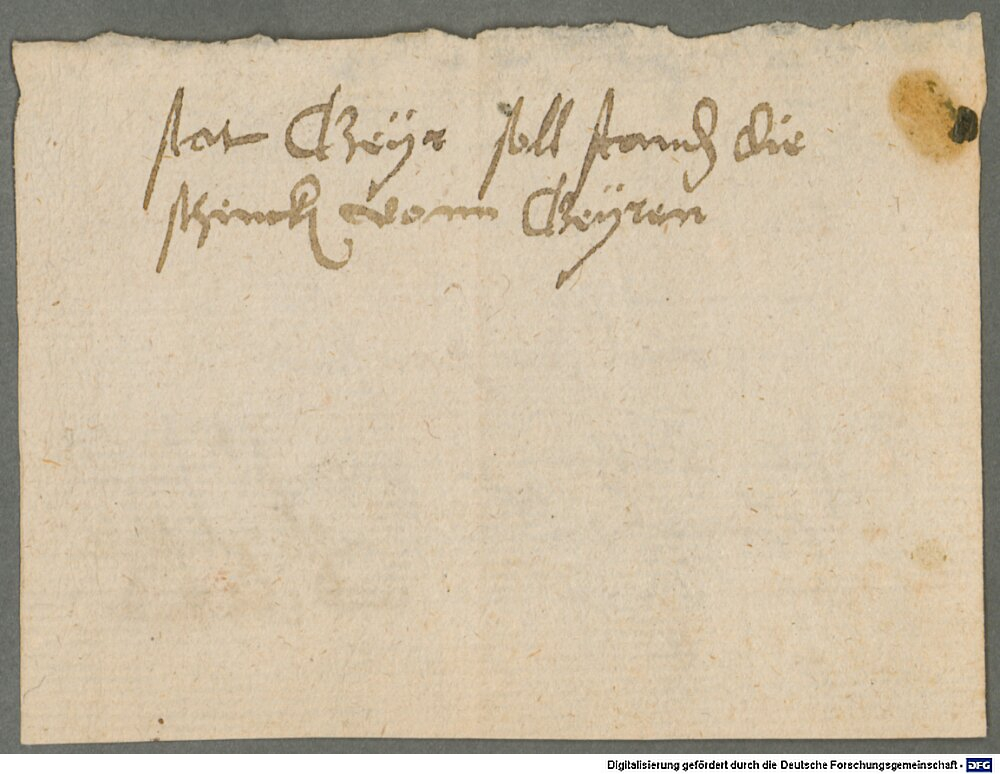 stat Geÿr soll stand die
schenck vonn Geÿren
Digitalisierung gefördert durch die Deutsche Forschungsgemeinschaft - DFG